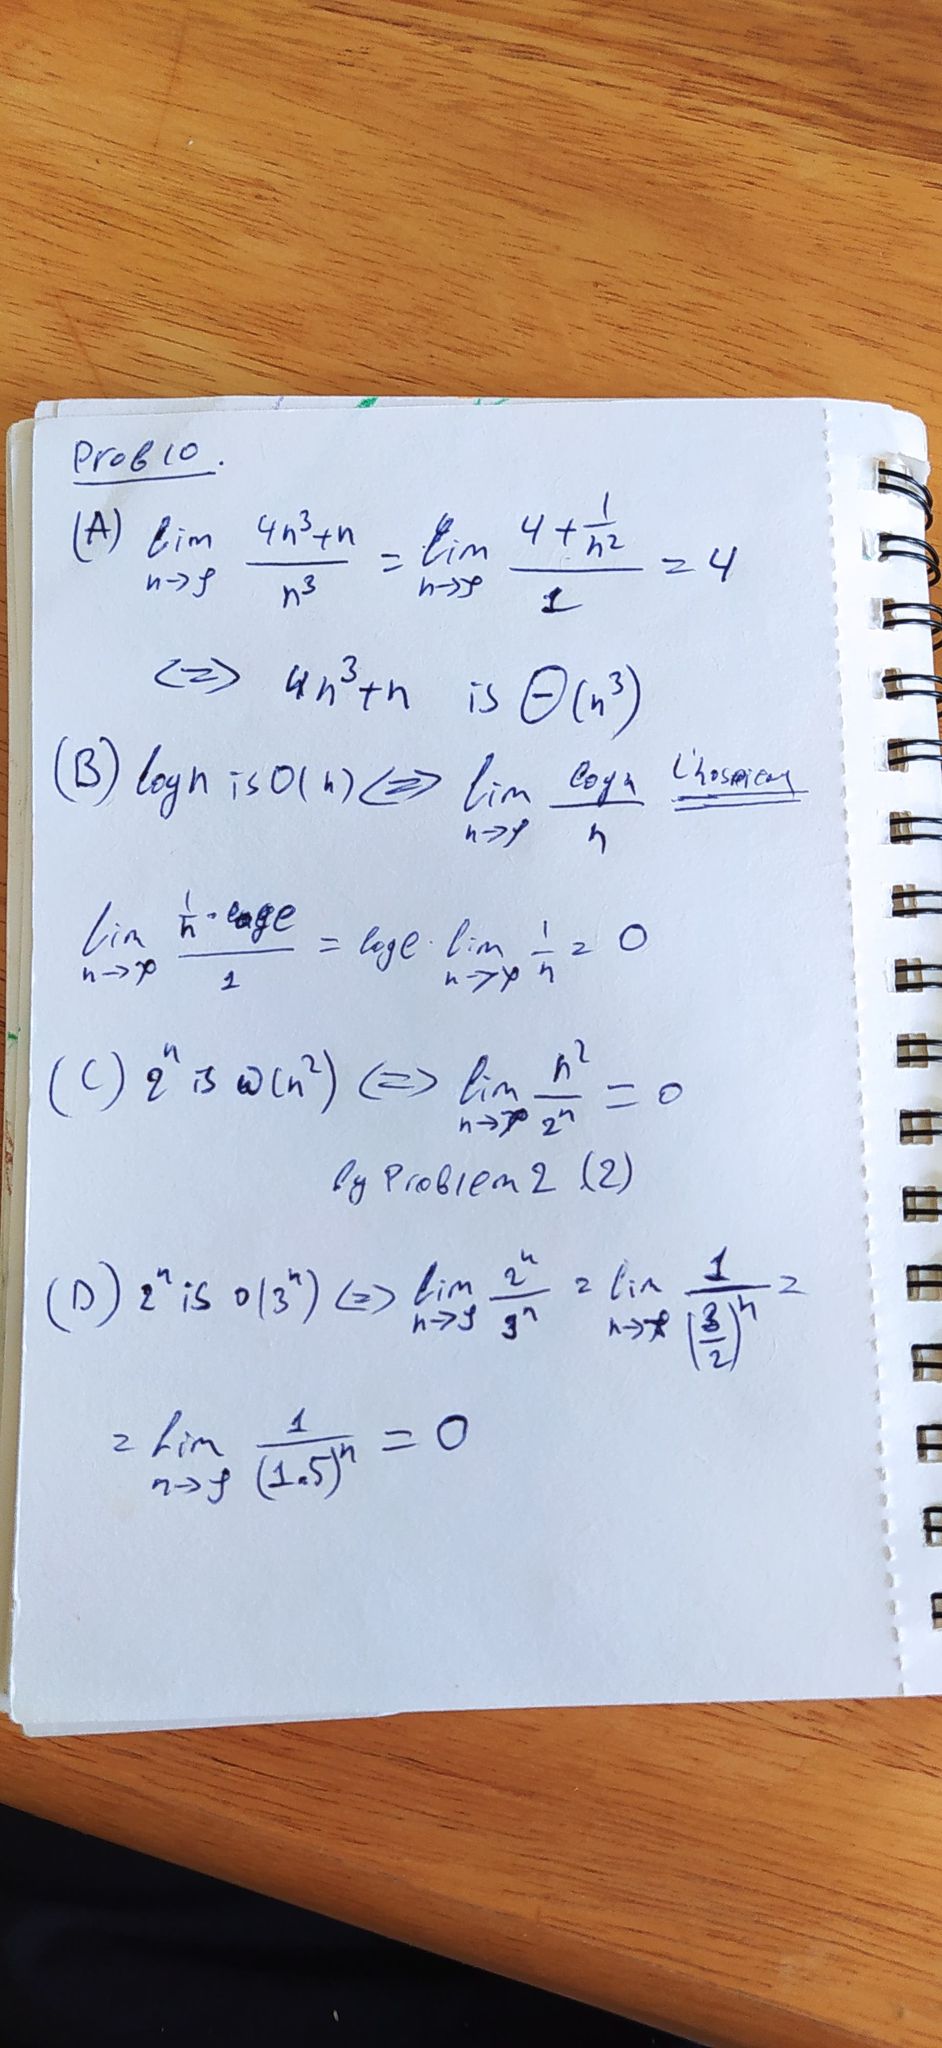 Prob 10.
(A) lim n→∞ (4n³+n)/n³ = lim n→∞ (4 + 1/n²)/1 = 4
<=> 4n³+n is Θ(n³)
(B) logn is O(n) <=> lim n→∞ logn/n L'hospital
lim n→∞ (1/n · loge)/1 = loge · lim n→∞ 1/n = 0
(C) 2ⁿ is ω(n²) <=> lim n→∞ n²/2ⁿ = 0
by Problem 2 (2)
(D) 2ⁿ is o(3ⁿ) <=> lim n→∞ 2ⁿ/3ⁿ = lim n→∞ 1/(3/2)ⁿ =
= lim n→∞ 1/(1.5)ⁿ = 0